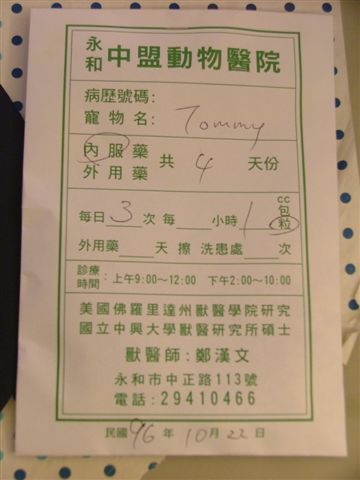 永和 中盟動物醫院
病歷號碼:
寵物名: Tommy
內服藥 共 4 天份
外用藥
每日 3 次 每 小時 1 cc 包 粒
外用藥 天 擦 洗患處 次
診療時間: 上午9:00~12:00 下午2:00~10:00
美國佛羅里達州獸醫學院研究
國立中興大學獸醫研究所碩士
獸醫師:鄭漢文
永和市中正路113號
電話:29410466
民國 96 年 10 月 22 日